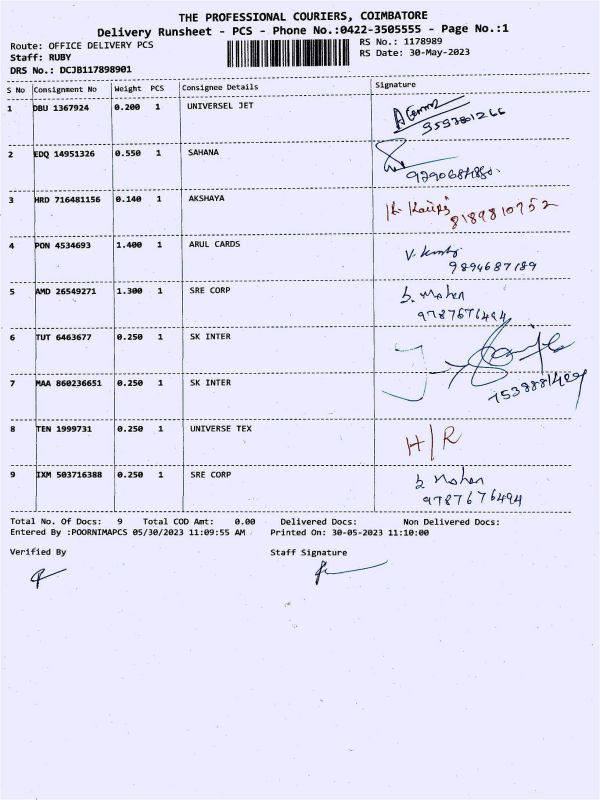 THE PROFESSIONAL COURIERS, COIMBATORE
Delivery Runsheet - PCS - Phone No.:0422-3505555 - Page No.:1
Route: OFFICE DELIVERY PCS
RS No.: 1178989
Staff: RUBY
RS Date: 30-May-2023
DRS No.: DCJB117898901
S No Consignment No Weight PCS Consignee Details Signature
1 DBU 1367924 0.200 1 UNIVERSEL JET
2 EDQ 14951326 0.550 1 SAHANA
3 HRD 716481156 0.140 1 AKSHAYA
8189810752
4 PON 4534693 1.400 1 ARUL CARDS
9894687189
5 AMD 26549271 1.300 1 SRE CORP S. Mohan
9787676494
6 TUT 6463677 0.250 1 SK INTER
7 MAA 860236651 0.250 1 SK INTER
8 TEN 1999731 0.250 1 UNIVERSE TEX H/R
9 IXM 503716388 0.250 1 SRE CORP S. Mohan
9787676494
Total No. Of Docs: 9 Total COD Amt: 0.00 Delivered Docs: Non Delivered Docs:
Entered By :POORNIMAPCS 05/30/2023 11:09:55 AM Printed On: 30-05-2023 11:10:00
Verified By Staff Signature